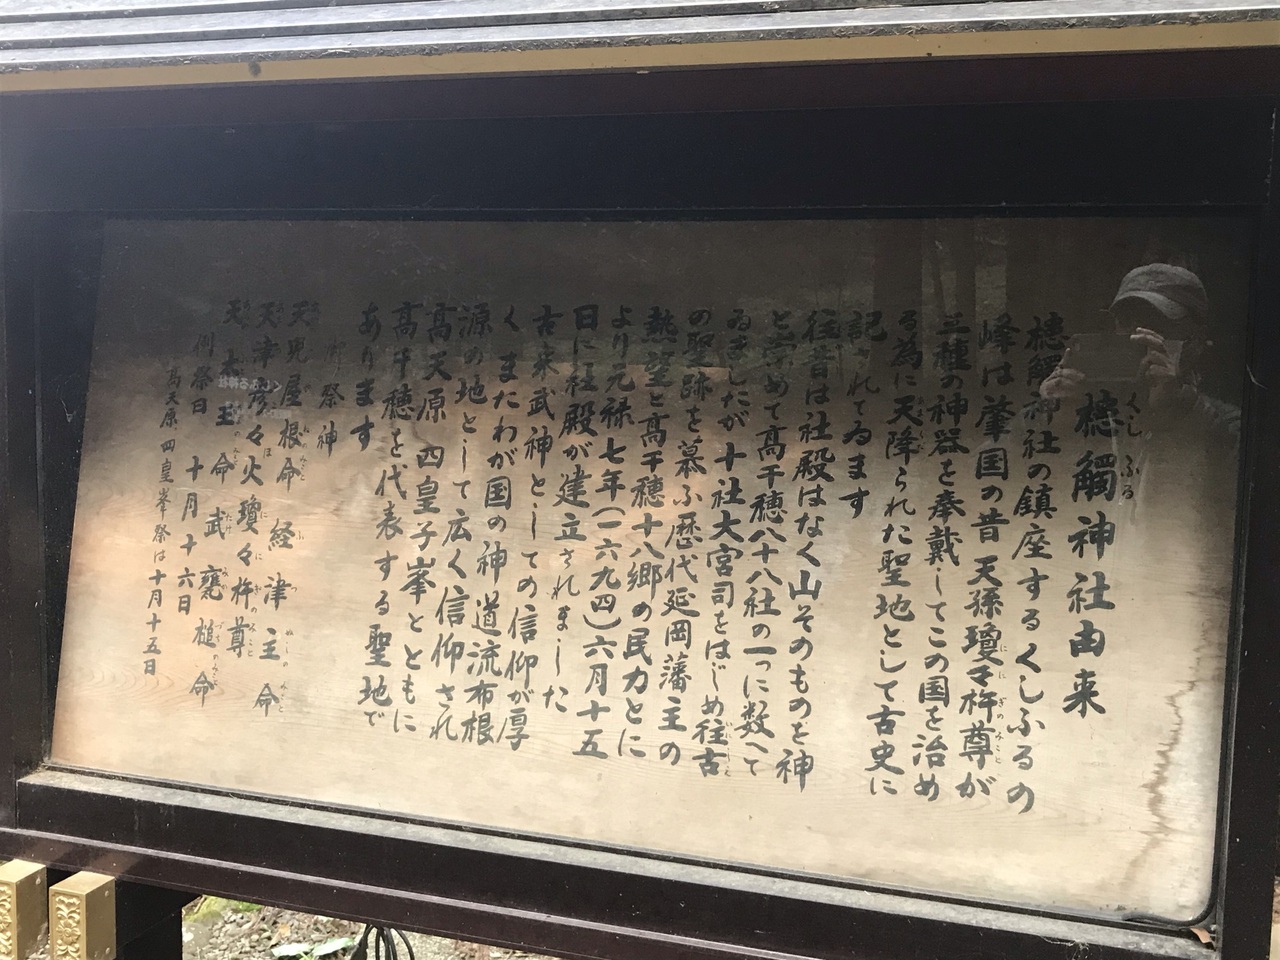 槵觸神社由来
くしふる
槵觸神社の鎮座するくしふるの
峰は肇国の昔 天孫瓊々杵尊が
ににぎのみこと
三種の神器を奉戴してこの国を治め
る為に天降られた聖地として古史に
記されてゐます
往昔は社殿はなく山そのものを神
と崇めて高千穂八十八社の一つに数へて
ゐましたが十社大宮司をはじめ往古
の聖跡を慕ふ歴代延岡藩主の
熱望と高千穂十八郷の民力とに
より元禄七年(一六九四)六月十五
日に社殿が建立されました
古来武神としての信仰が厚
くまたわが国の神道流布根
源の地として広く信仰され
高天原 四皇子峯とともに
高千穂を代表する聖地で
あります
御祭神
天児屋根命 経津主命
天津彦々火瓊々杵尊
天太玉命 武甕槌命
例祭日 十月十六日
高天原四皇峯祭は十月十五日